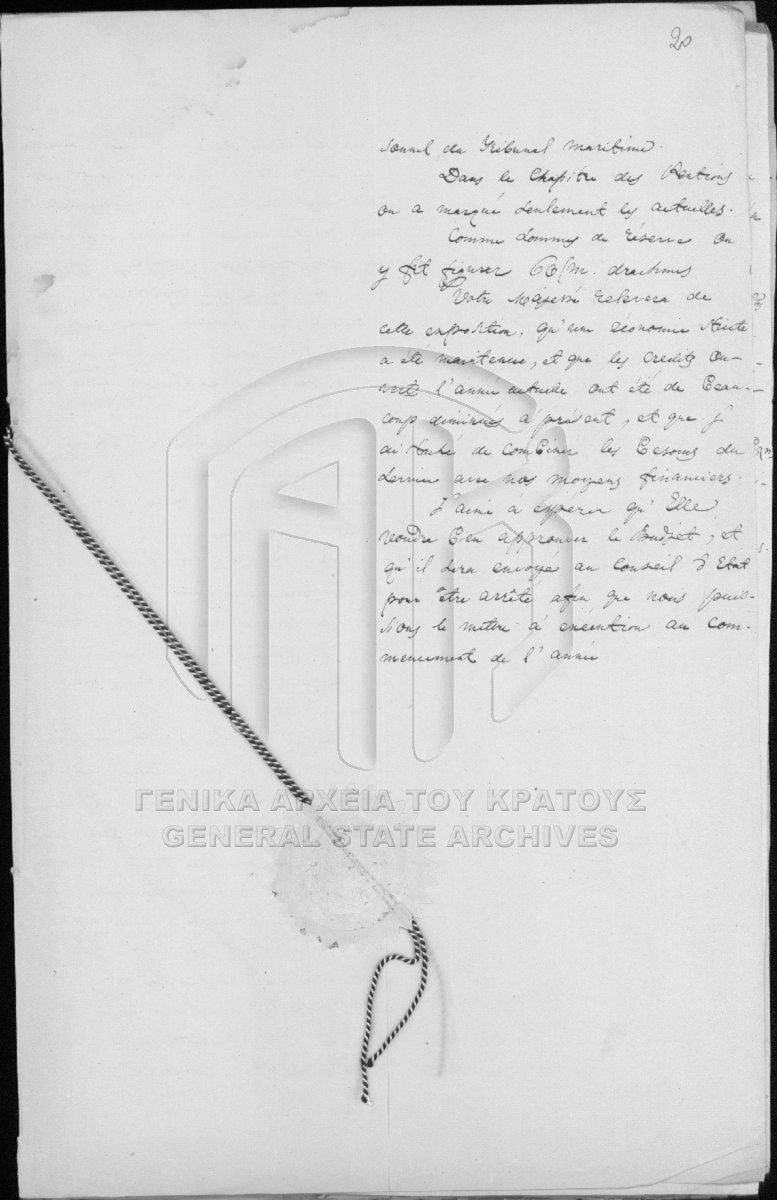 20
sonnel du Tribunal maritime.
Dans le Chapitre des Pentions
on a marqué seulement les actuelles.
Comme sommes de réserve on
y fit figurer 60/m. drachmes
Votre Majesté relevera de
cette exposition, qu'une économie stricte
a été maintenue, et que les credits ou-
verts l'année actuelle ont été de beau-
coup diminués à présent, et que j'
ai taché de combiner les besoins du
service avec nos moyens financiers.
J'aime à espérer qu'Elle
voudra bien approuver le Budjet, et
qu'il sera envoyé au Conseil d'Etat
pour être arrêté afin que nous puis-
sions le mettre à execution au com-
mencement de l'année
ΓΕΝΙΚΑ ΑΡΧΕΙΑ ΤΟΥ ΚΡΑΤΟΥΣ
GENERAL STATE ARCHIVES